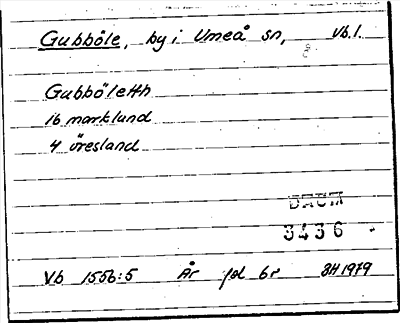 Gubböle, by i Umeå sn, Vb.l.
Gubböletth
16 markland
4 öresland
DAUM
3436
Vb 1556:5 År jd br BH 1979